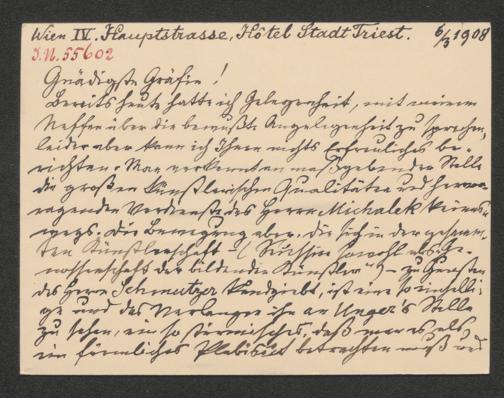 Wien IV. Hauptstrasse, Hôtel Stadt Triest. 6/3 1908
J.N. 55602
Gnädigste Gräfin!
Bereits heute hatte ich Gelegenheit, mit meinem
Neffen über die bewußte Angelegenheit zu sprechen,
leider aber kann ich Ihnen nichts Erfreuliches be-
richten. Man verkennt an maßgebender Stelle
die großen künstlerischen Qualitäten und hervor-
ragenden Verdienste des Herrn Michalek keines-
wegs. Die Bewegung aber, die sich in der gesamm-
ten Künstlerschaft (Sezession sowohl als Ge-
nossenschaft der bildenden Künstler) zu Gunsten
des Herrn Schmutzer kundgiebt, ist eine so einhelli-
ge und das Verlangen ihn an Unger's Stelle
zu sehen, ein so stürmisches, daß man es als
ein förmliches Plebiscit betrachten muß und